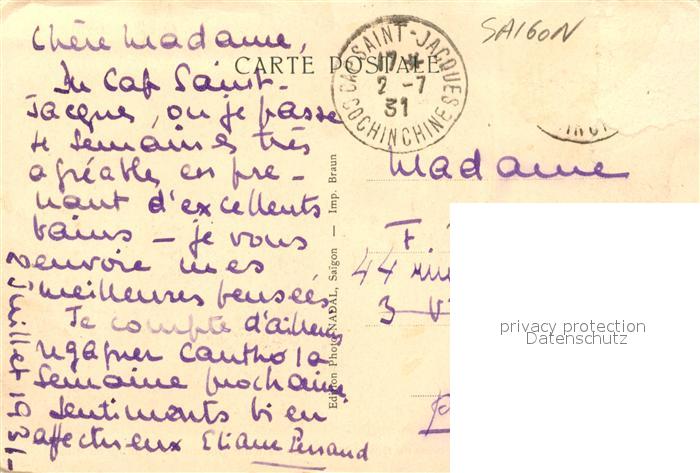 Chère Madame,
CARTE POSTALE
Du Cap Saint-
Jacques, où je passe
semaines très
agréables en pre-
nant d'excellents
bains — je vous
envoie mes
meilleures pensées.
Je compte d'ailleurs
regagner Cantho la
semaine prochaine
sentiments bien
affectueux Eliane
Juillet 1931
CAP SAINT-JACQUES
2 -7
31
COCHINCHINE
SAIGON
Edition Photo NADAL, Saigon — Imp. Braun
Madame
44
3
privacy protection
Datenschutz